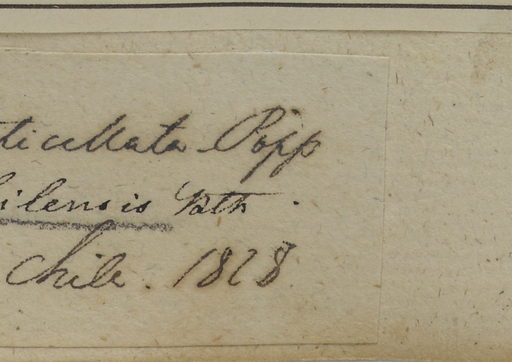 ticillata Popp
ilensis Nath.
Chile. 1828